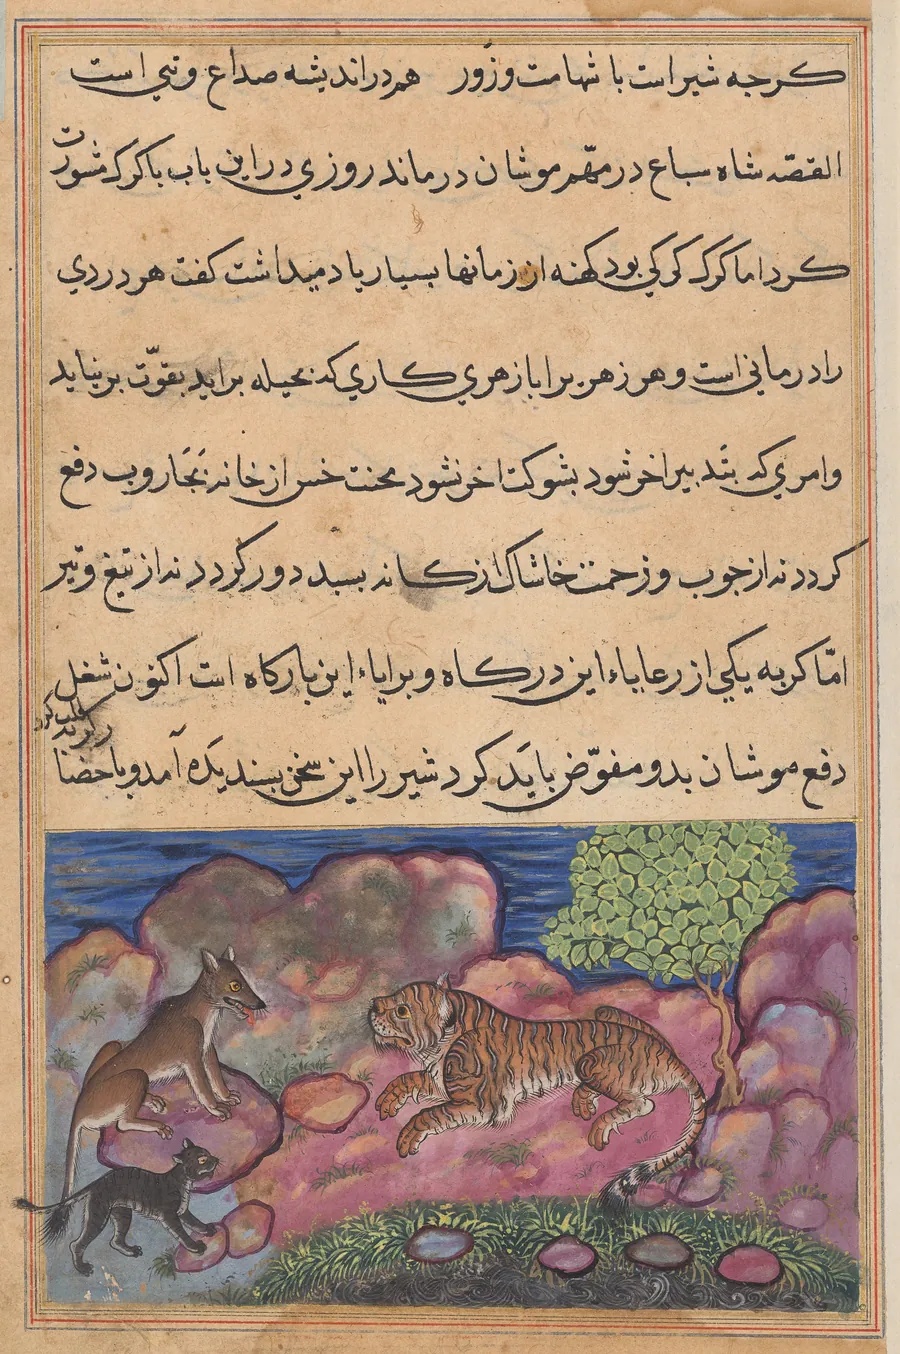 کرجه شیر است با شهامت وزور هم در اندیشه صداع و تبی است
القصّه شاه سباع در مهّم موشان درماند روزی در این باب با کرک مشورت
کرد اما کرک کرکی بود کهنه از زمانها بسیار یاد میداشت کفت هر دردی
را درمانی است و هر زهریرا بازهری کاری که بحیله براید بقوّت برنیاید
وامری که بتدبیر اخر شود بشوکت اخر نشود محنت خس از خانه بجاروب دفع
کردد نه از جوب و زحمت خاشاک از کانه بسبد دور کردد نه از تیغ و تیر
امّا کربه یکی از رعایاء این درکاه و برایاء این بارکاه است اکنون شغل
دفع موشان بدو مفوّض باید کرد شیر را این سخن بسندیده آمد و باحضا
ر کربه